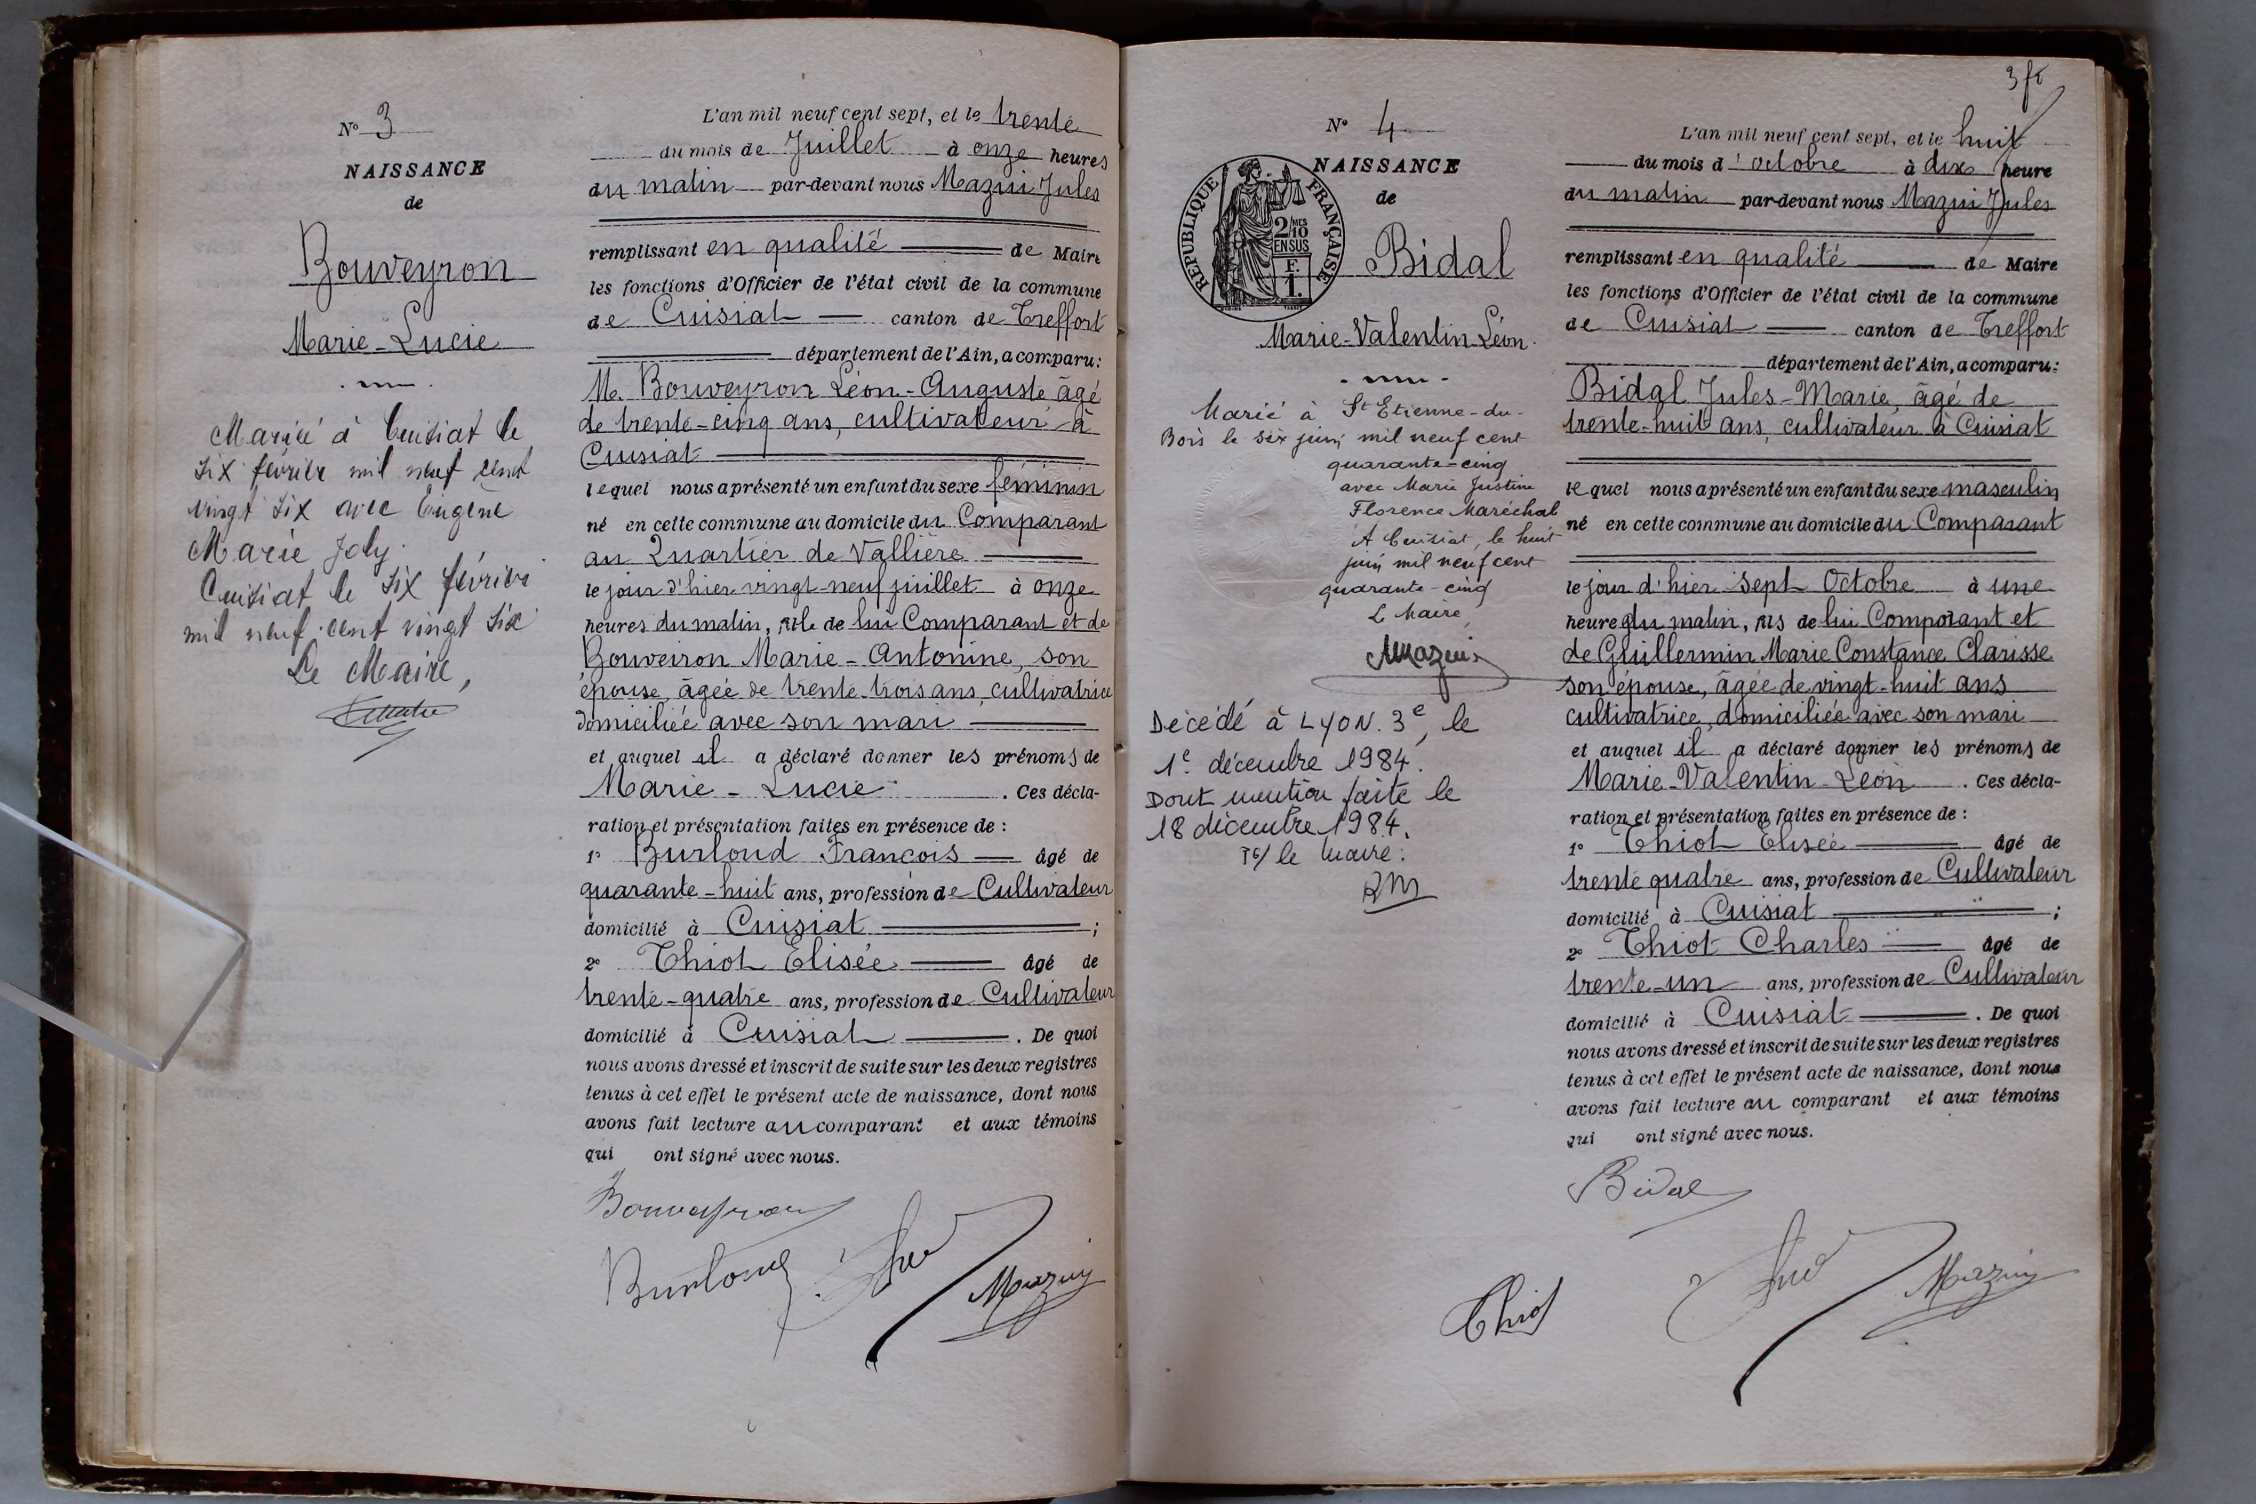 N° 3
NAISSANCE
de
Bouveyron
Marie-Lucie
Mariée à Cuisiat le
six février mil neuf cent
vingt six avec Eugène
Marie Joly.
Cuisiat le six février
mil neuf cent vingt six
Le Maire,
L'an mil neuf cent sept, et le trente
du mois de Juillet à onze heures
du matin par-devant nous Mazui Jules
remplissant en qualité de Maire
les fonctions d'Officier de l'état civil de la commune
de Cuisiat canton de Treffort
département de l'Ain, a comparu:
M. Bouveyron Léon-Auguste âgé
de trente-cinq ans, cultivateur à
Cuisiat
lequel nous a présenté un enfant du sexe féminin
né en cette commune au domicile du Comparant
au Quartier de Vallière
le jour d'hier vingt-neuf juillet à onze
heures du matin, fille de lui Comparant et de
Bouveiron Marie-Antonine, son
épouse, âgée de trente-trois ans, cultivatrice
domiciliée avec son mari
et auquel il a déclaré donner les prénoms de
Marie-Lucie. Ces décla-
ration et présentation faites en présence de :
1° Burloud François âgé de
quarante-huit ans, profession de Cultivateur
domicilié à Cuisiat ;
2° Thiot Elisée âgé de
trente-quatre ans, profession de Cultivateur
domicilié à Cuisiat. De quoi
nous avons dressé et inscrit de suite sur les deux registres
tenus à cet effet le présent acte de naissance, dont nous
avons fait lecture au comparant et aux témoins
qui ont signé avec nous.
Bouveyron
Burloud
Mazuy
3 ft
N° 4
NAISSANCE
de
RÉPUBLIQUE FRANÇAISE
2/10 MES
EN SUS
F.
1.
Bidal
Marie-Valentin-Léon.
Marié à St Etienne-du-
Bois le six juin mil neuf cent
quarante-cinq
avec Marie Justine
Florence Maréchal
A Cuisiat, le huit
juin mil neuf cent
quarante-cinq
L Maire,
AMazuis
Décédé à LYON. 3e, le
1e décembre 1984.
Dont mention faite le
18 décembre 1984.
Le Maire:
L'an mil neuf cent sept, et le huit
du mois d'octobre à dix heure
du matin par-devant nous Mazui Jules
remplissant en qualité de Maire
les fonctions d'Officier de l'état civil de la commune
de Cuisiat canton de Treffort
département de l'Ain, a comparu:
Bidal Jules-Marie, âgé de
trente-huit ans, cultivateur à Cuisiat
lequel nous a présenté un enfant du sexe masculin
né en cette commune au domicile du Comparant
le jour d'hier sept Octobre à une
heure du matin, fils de lui Comparant et
de Guillermin Marie Constance Clarisse
son épouse, âgée de vingt-huit ans
cultivatrice, domiciliée avec son mari
et auquel il a déclaré donner les prénoms de
Marie-Valentin-Léon. Ces décla-
ration et présentation faites en présence de :
1° Thiot Elisée âgé de
trente quatre ans, profession de Cultivateur
domicilié à Cuisiat ;
2° Thiot Charles âgé de
trente-un ans, profession de Cultivateur
domicilié à Cuisiat. De quoi
nous avons dressé et inscrit de suite sur les deux registres
tenus à cet effet le présent acte de naissance, dont nous
avons fait lecture au comparant et aux témoins
qui ont signé avec nous.
Bidal
Thiot
Mazuy